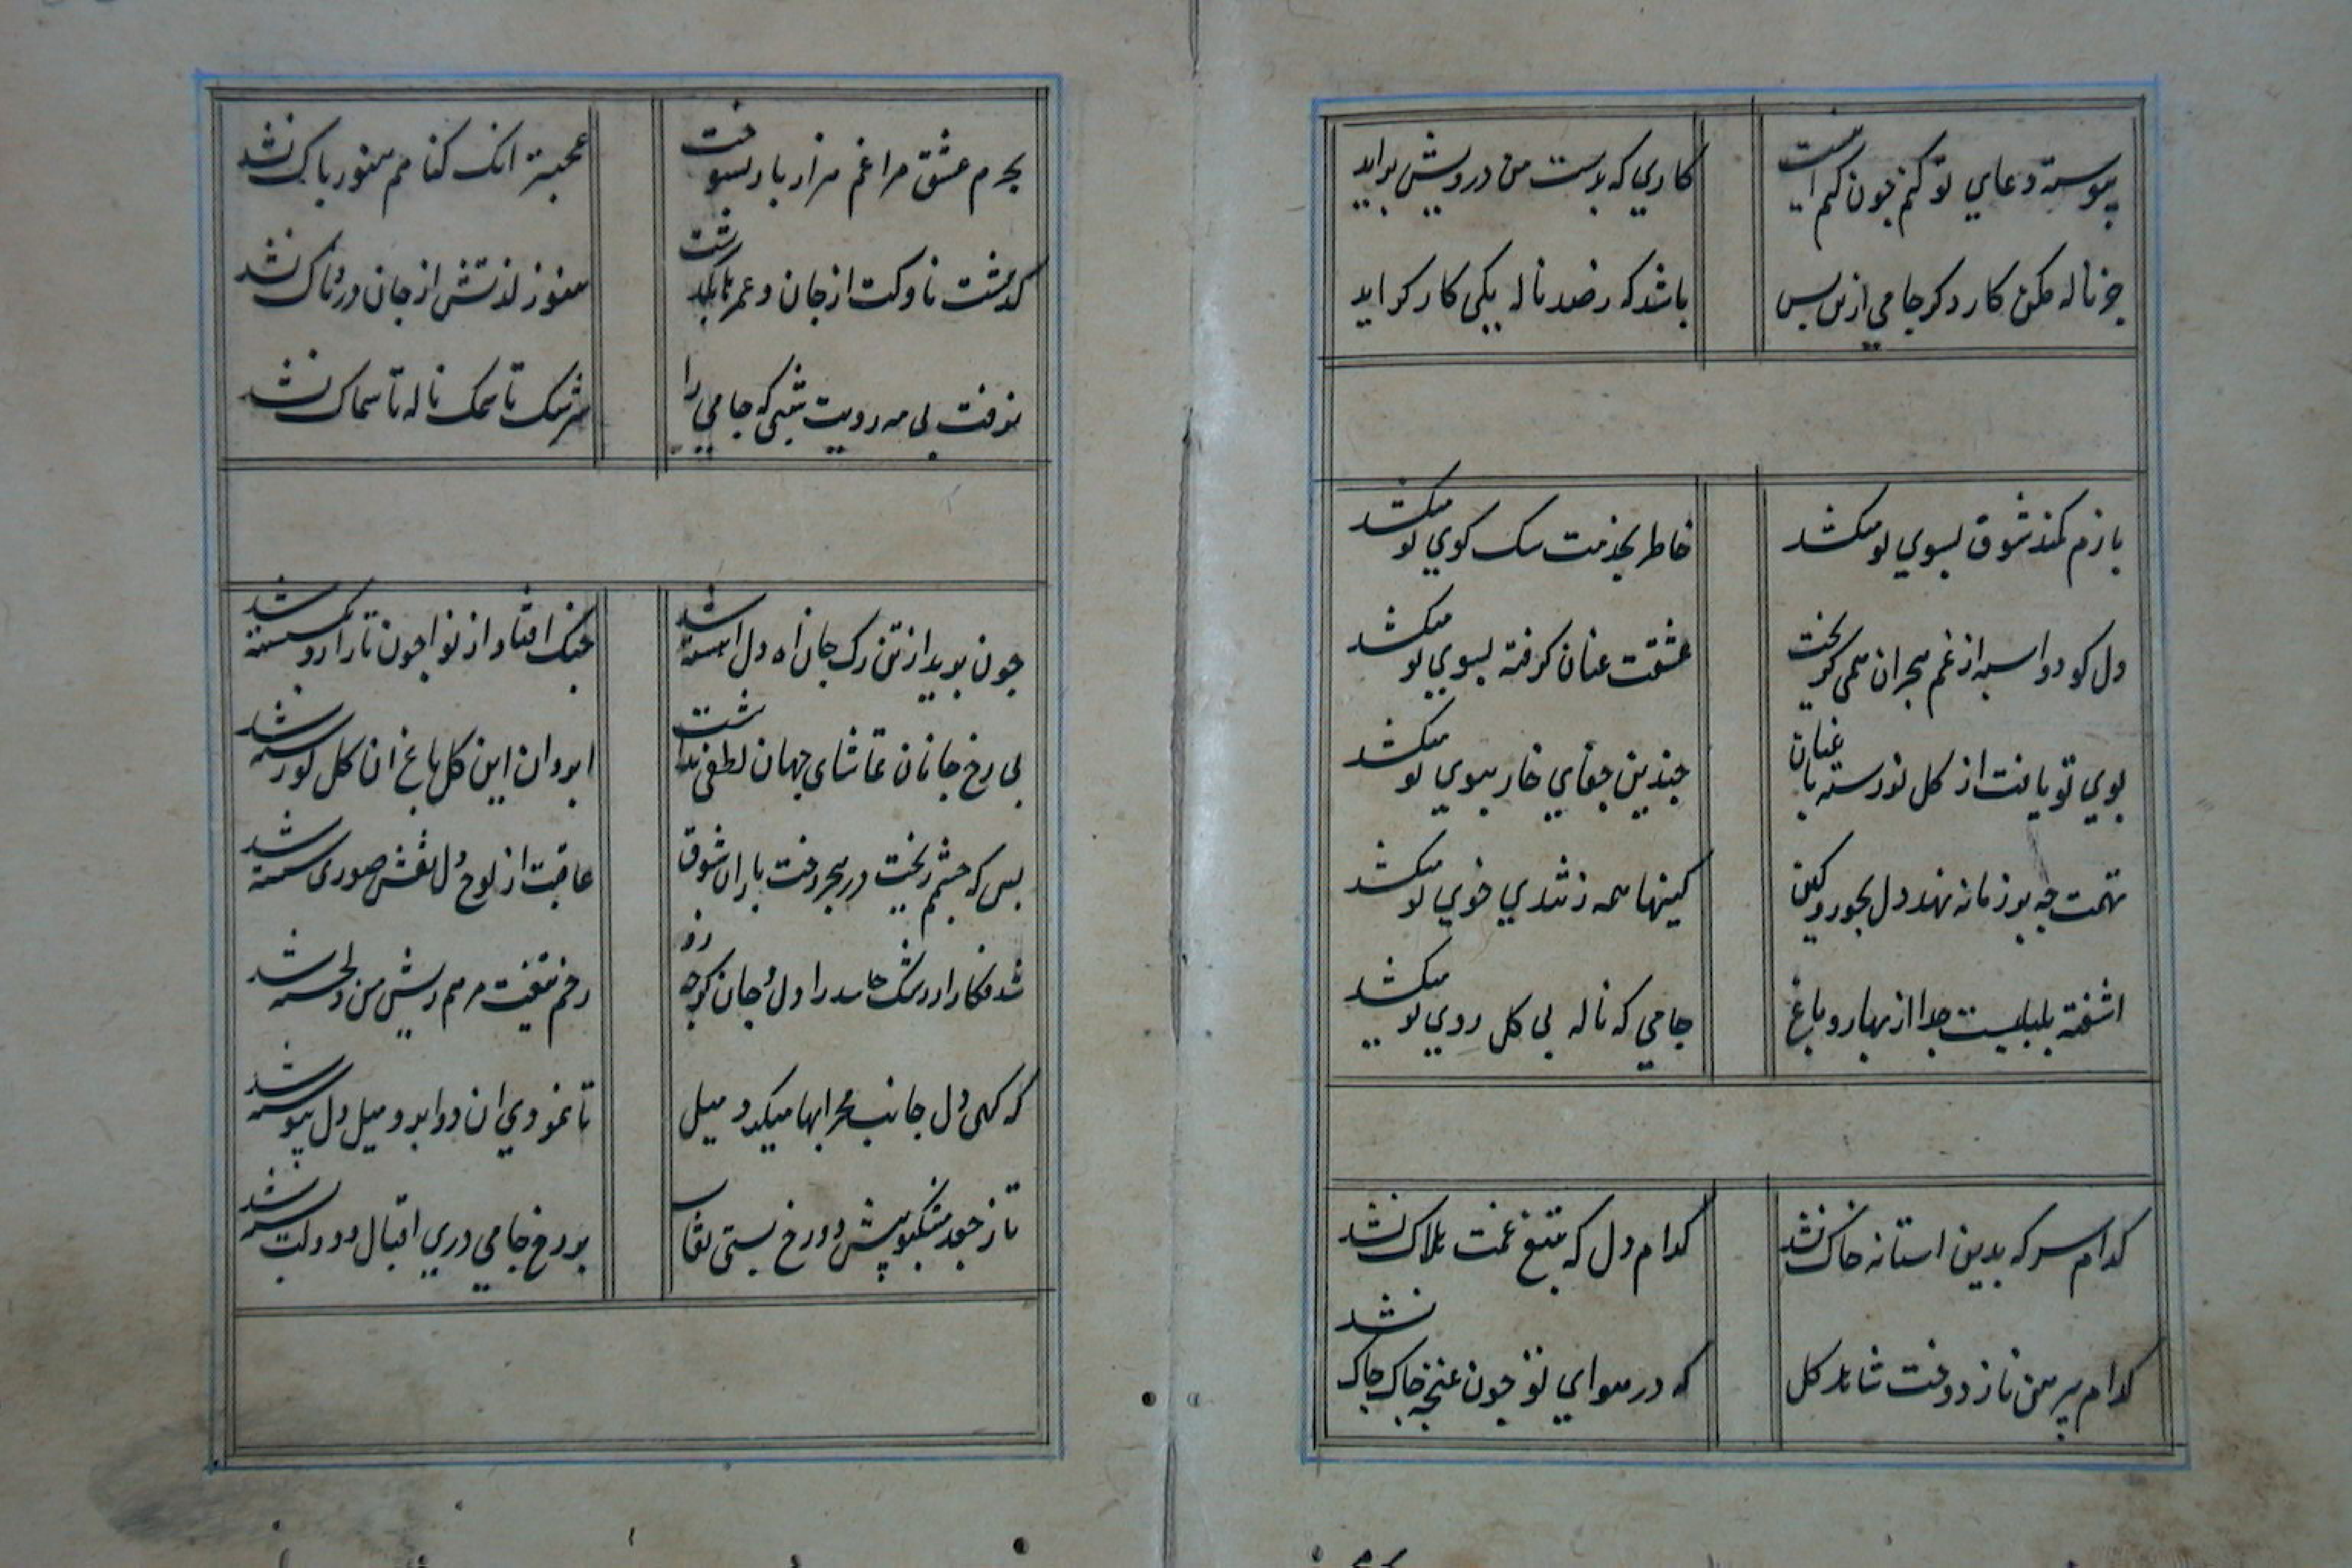 پیوسته دعای تو کنم چون کنم اینست
کاری که بدست من درویش براید
جز ناله مکن کار دکر جامی ازین پس
باشد که ز صد ناله یکی کارکر اید
بازم کمند شوق بسوی تو میکشد
خاطر بخدمت سک کوی تو میکشد
دل کو دواسبه از غم هجران همی کریخت
عشقت عنان کرفته بسوی تو میکشد
بوی تو یافت از کل نورسته باغبان
چندین جفای خار ببوی تو میکشد
تهمت چه بر زمانه نهد دل بجور و کین
کینها همه ز تندی خوی تو میکشد
اشفته بلبلیست جدا از بهار و باغ
جامی که ناله بی کل روی تو میکشد
کدام سر که بدین استانه خاک نشد
کدام دل که بتیغ غمت هلاک نشد
کدام پیرهن ناز دوخت شاهد کل
که در هوای تو چون غنچه چاک چاک نشد
بجرم عشق مرا غم هزار بار بسوخت
عجبتر انک کناهم هنوز پاک نشد
کذشت ناوکت از جان و عمر بکذشت
هنوز لذتش از جان دردناک نشد
نرفت بی مه رویت شبی که جامی را
سرشک تا سمک ناله تا سماک نشد
چون برید از تن رک جان اه دل اهسته شد
چنک افتاد از نوا چون تار ازو بکسسته شد
بی رخ جانان تماشای جهان لطفی نداشت
ابروان این کل باغ ان کل نورسته شد
بس که چشمم ریخت در هجر رخت باران شوق
عاقبت از لوح دل نقش صبوری شسته شد
شد فکار از رشک حاسد را دل و جان کرچه زو
زخم تیغت مرهم ریش من دلخسته شد
که کهی دل جانب محرابها میکرد میل
تا نمودی ان دو ابرو میل دل پیوسته شد
تا ز جعد مشکبو پیش دو رخ بستی نقاب
بر رخ جامی دری اقبال و دولت بسته شد